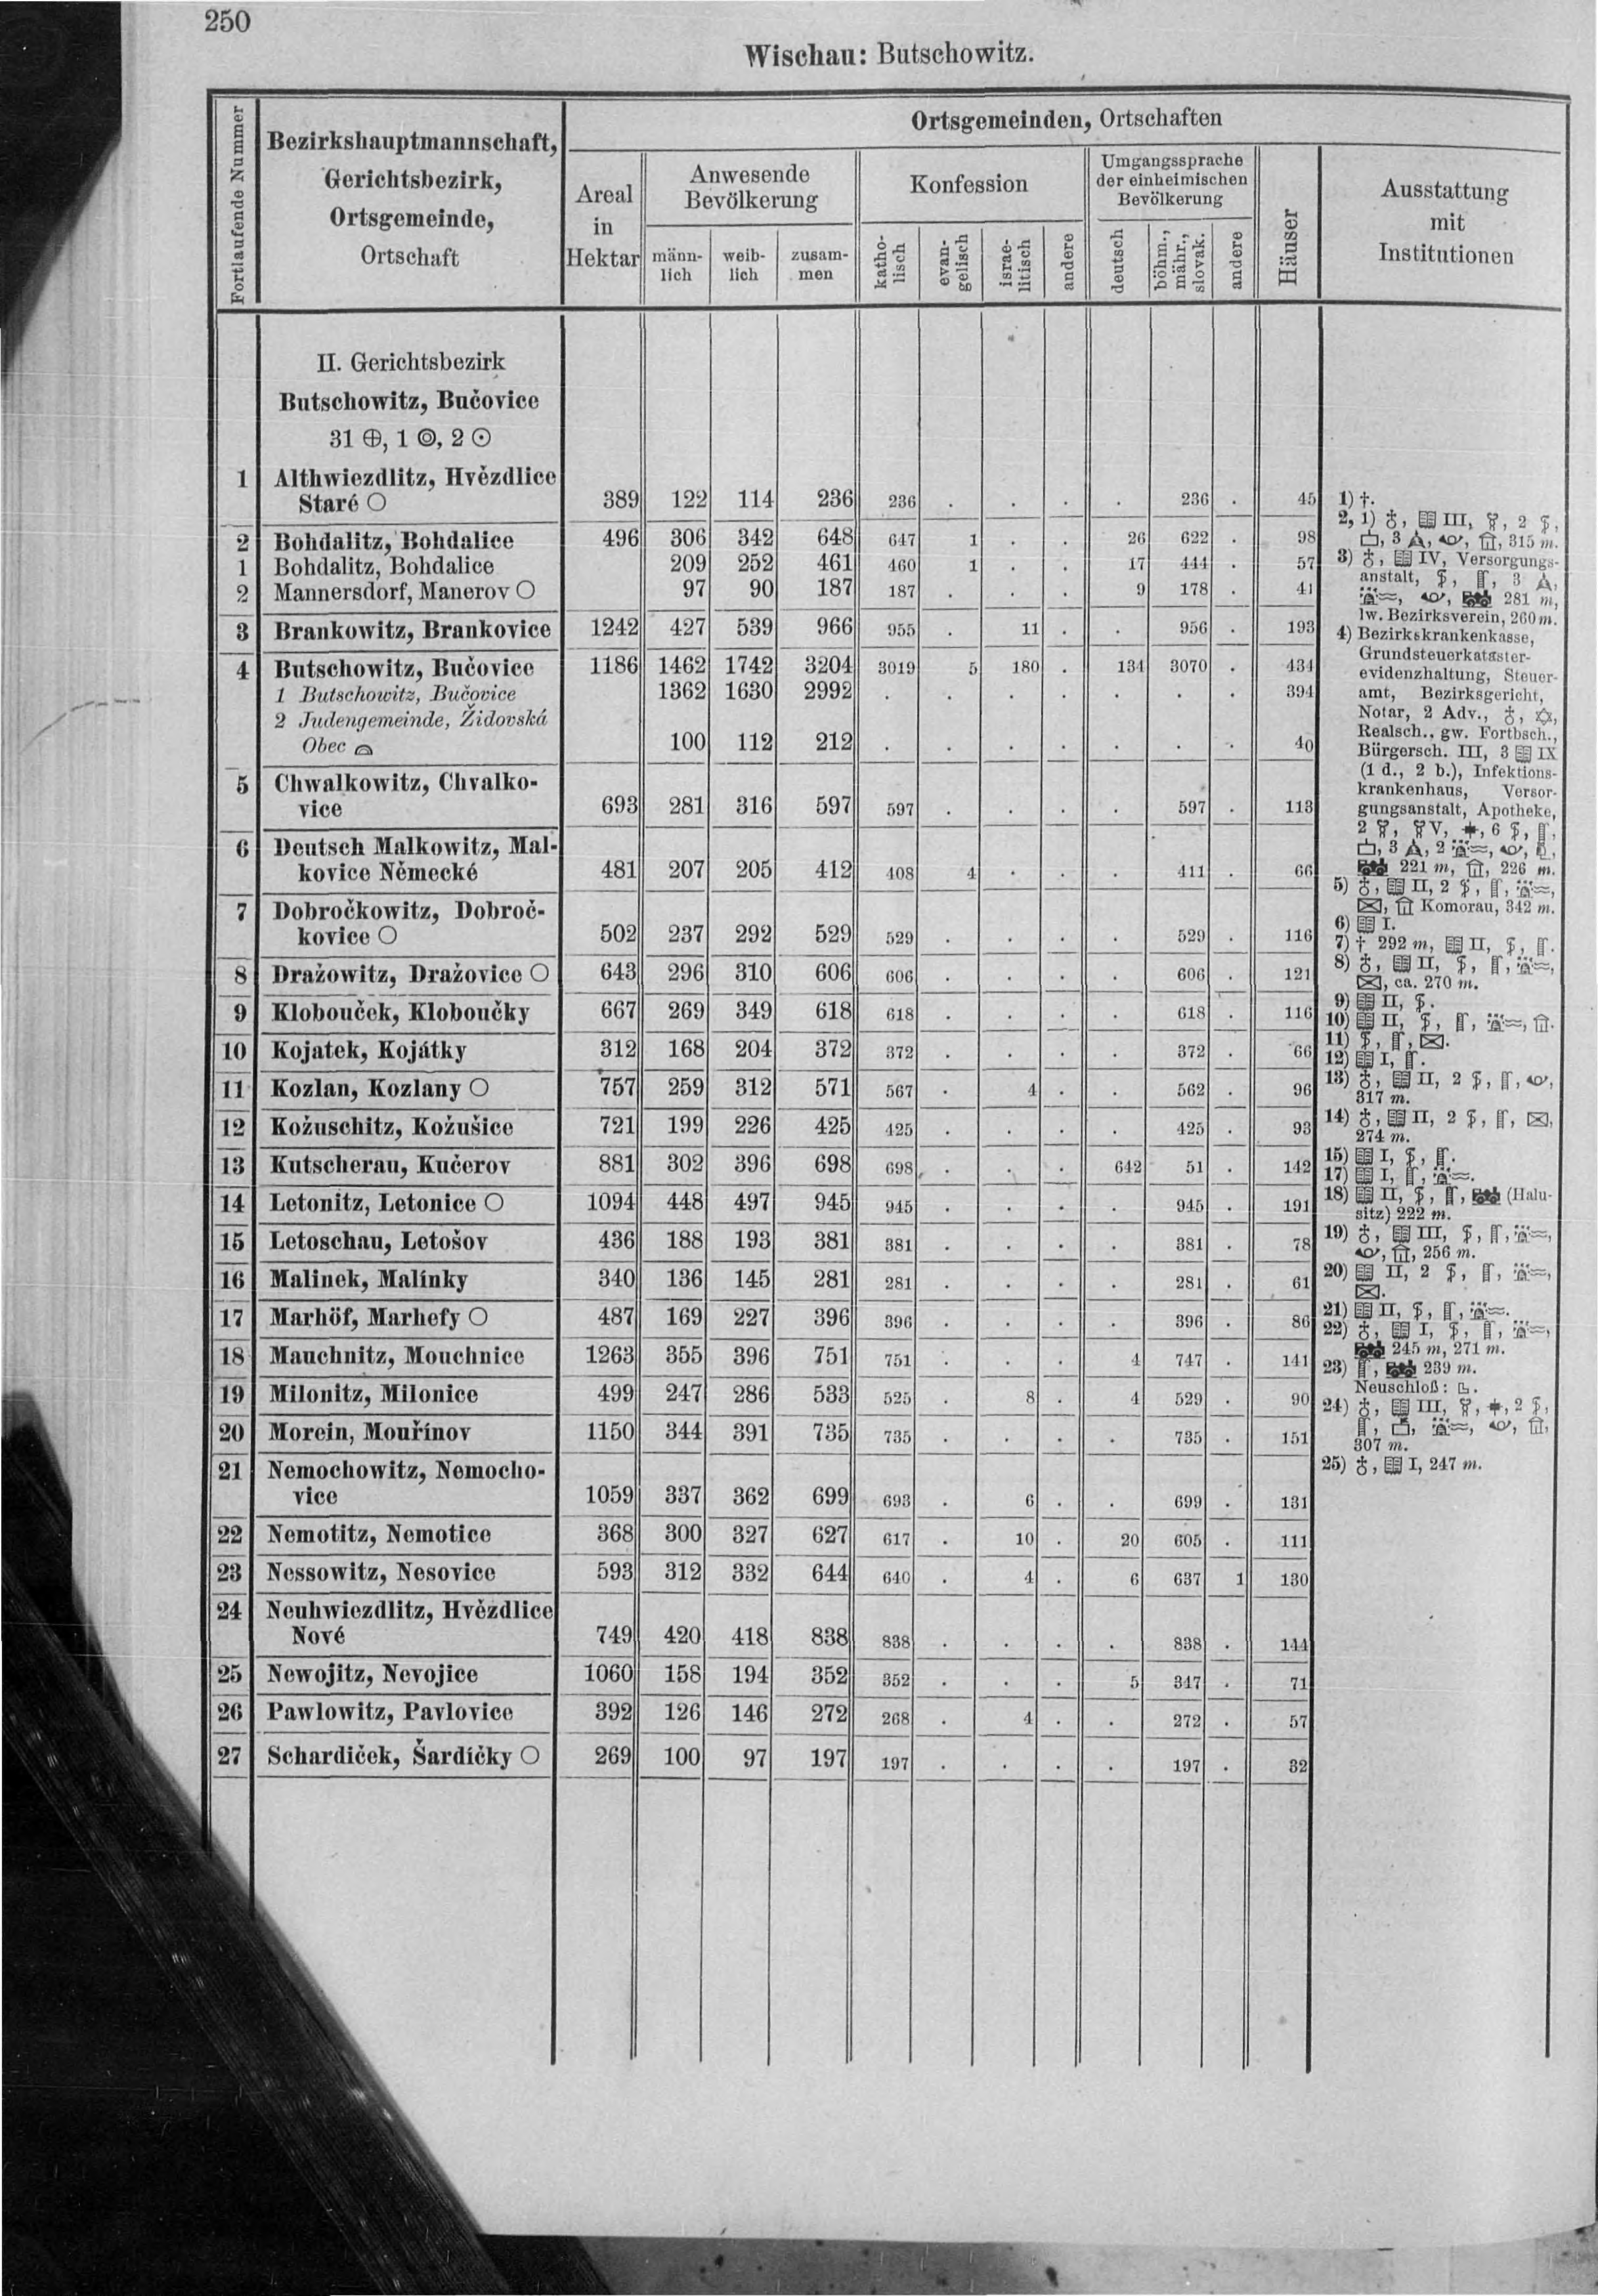 250
Wischau: Butschowitz.
Fortlaufende Nummer
Bezirkshauptmannschaft,
Gerichtsbezirk,
Ortsgemeinde,
Ortschaft
Ortsgemeinden, Ortschaften
Areal
in
Hektar
Anwesende
Bevölkerung
männ-
lich
weib-
lich
zusam-
men
Konfession
katho-
lisch
evan-
gelisch
israe-
litisch
andere
Umgangssprache
der einheimischen
Bevölkerung
deutsch
böhm.,
mähr.,
slovak.
andere
Häuser
Ausstattung
mit
Institutionen
II. Gerichtsbezirk
Butschowitz, Bučovice
31 ⊕, 1 ◎, 2 ⊙
1 Althwiezdlitz, Hvězdlice
Staré ○ 389 122 114 236 236 . . . . 236 . 45
2 Bohdalitz, Bohdalice 496 306 342 648 647 1 . . 26 622 . 98
1 Bohdalitz, Bohdalice 209 252 461 460 1 . . 17 444 . 57
2 Mannersdorf, Manerov ○ 97 90 187 187 . . . 9 178 . 41
3 Brankowitz, Brankovice 1242 427 539 966 955 . 11 . . 956 . 193
4 Butschowitz, Bučovice 1186 1462 1742 3204 3019 5 180 . 134 3070 . 434
1 Butschowitz, Bučovice 1362 1630 2992 . . . . . . . 394
2 Judengemeinde, Židovská
Obec 100 112 212 . . . . . . . 40
5 Chwalkowitz, Chvalko-
vice 693 281 316 597 597 . . . . 597 . 113
6 Deutsch Malkowitz, Mal-
kovice Německé 481 207 205 412 408 4 . . . 411 . 66
7 Dobročkowitz, Dobroč-
kovice ○ 502 237 292 529 529 . . . . 529 . 116
8 Dražowitz, Dražovice ○ 643 296 310 606 606 . . . . 606 . 121
9 Klobouček, Kloboučky 667 269 349 618 618 . . . . 618 . 116
10 Kojatek, Kojátky 312 168 204 372 372 . . . . 372 . 66
11 Kozlan, Kozlany ○ 757 259 312 571 567 . 4 . . 562 . 96
12 Kožuschitz, Kožušice 721 199 226 425 425 . . . . 425 . 93
13 Kutscherau, Kučerov 881 302 396 698 698 . . . 642 51 . 142
14 Letonitz, Letonice ○ 1094 448 497 945 945 . . . . 945 . 191
15 Letoschau, Letošov 436 188 193 381 381 . . . . 381 . 78
16 Malinek, Malínky 340 136 145 281 281 . . . . 281 . 61
17 Marhöf, Marhefy ○ 487 169 227 396 396 . . . . 396 . 86
18 Mauchnitz, Mouchnice 1263 355 396 751 751 . . . 4 747 . 141
19 Milonitz, Milonice 499 247 286 533 525 . 8 . 4 529 . 90
20 Morein, Mouřínov 1150 344 391 735 735 . . . . 735 . 151
21 Nemochowitz, Nemocho-
vice 1059 337 362 699 693 . 6 . . 699 . 131
22 Nemotitz, Nemotice 368 300 327 627 617 . 10 . 20 605 . 111
23 Nessowitz, Nesovice 593 312 332 644 640 . 4 . 6 637 1 130
24 Neuhwiezdlitz, Hvězdlice
Nové 749 420 418 838 838 . . . . 838 . 144
25 Newojitz, Nevojice 1060 158 194 352 352 . . . 5 347 . 71
26 Pawlowitz, Pavlovice 392 126 146 272 268 . 4 . . 272 . 57
27 Schardiček, Šardíčky ○ 269 100 97 197 197 . . . . 197 . 32
1) †.
2, 1) III, 2
3 315 m.
3) IV, Versorgungs-
anstalt, 3
281 m,
lw. Bezirksverein, 260 m.
4) Bezirkskrankenkasse,
Grundsteuerkataster-
evidenzhaltung, Steuer-
amt, Bezirksgericht,
Notar, 2 Adv.,
Realsch., gw. Fortbsch.,
Bürgersch. III, 3 IX
(1 d., 2 b.), Infektions-
krankenhaus, Versor-
gungsanstalt, Apotheke,
2 V, 6
3 2
221 m, 226 m.
5) II, 2
Komorau, 342 m.
6) I.
7) † 292 m, II,
8) II,
ca. 270 m.
9) II,
10) II,
11)
12) I,
13) II, 2
317 m.
14) II, 2
274 m.
15) I,
17) I,
18) II, (Halu-
sitz) 222 m.
19) III,
256 m.
20) II, 2
21) II,
22) I,
245 m, 271 m.
23) 239 m.
Neuschloß:
24) III, 2
307 m.
25) I, 247 m.